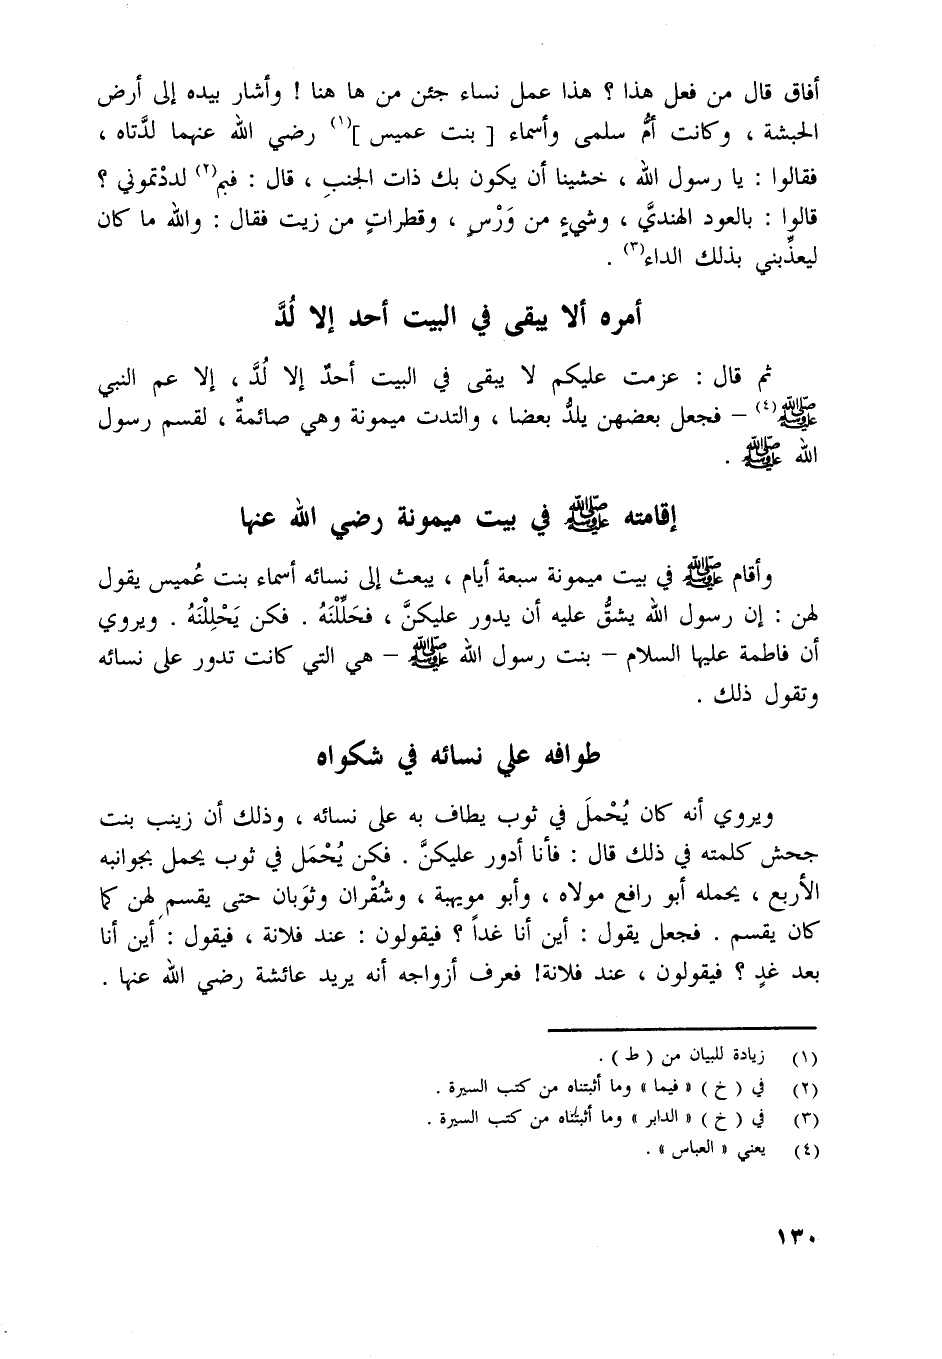 أفاق قال من فعل هذا ؟ هذا عمل نساء جئن من ها هنا ! وأشار بيده إلى أرض
الحبشة ، وكانت أمُّ سلمى وأسماء [ بنت عميس ](١) رضي الله عنهما لدَّتاه ،
فقالوا : يا رسول الله ، خشينا أن يكون بك ذات الجنبِ ، قال : فبم(٢) لددْتموني ؟
قالوا : بالعود الهنديَّ ، وشيءٍ من وَرْسٍ ، وقطراتٍ من زيت فقال : والله ما كان
ليعذِّبني بذلك الداء(٣) .
أمره ألا يبقى في البيت أحد إلا لُدَّ
ثم قال : عزمت عليكم لا يبقى في البيت أحدٌ إلا لُدَّ ، إلا عم النبي
ﷺ(٤) – فجعل بعضهن يلدُّ بعضا ، والتدت ميمونة وهي صائمةٌ ، لقسم رسول
الله ﷺ .
إقامته ﷺ في بيت ميمونة رضي الله عنها
وأقام ﷺ في بيت ميمونة سبعة أيام ، يبعث إلى نسائه أسماء بنت عُميس يقول
لهن : إن رسول الله يشقُّ عليه أن يدور عليكنَّ ، فحَلِّلْنَهُ . فكن يَحْلِلْنَهُ . ويروي
أن فاطمة عليها السلام – بنت رسول الله ﷺ – هي التي كانت تدور على نسائه
وتقول ذلك .
طوافه علي نسائه في شكواه
ويروي أنه كان يُحْملَ في ثوب يطاف به على نسائه ، وذلك أن زينب بنت
جحش كلمته في ذلك قال : فأنا أدور عليكنَّ . فكن يُحْمَل في ثوب يحمل بجوانبه
الأربع ، يحمله أبو رافع مولاه ، وأبو مويهبة ، وشُقْران وثوَبان حتى يقسم لهن كما
كان يقسم . فجعل يقول : أين أنا غداً ؟ فيقولون : عند فلانة ، فيقول : أين أنا
بعد غدٍ ؟ فيقولون ، عند فلانة! فعرف أزواجه أنه يريد عائشة رضي الله عنها .
(١) زيادة للبيان من ( ط ) .
(٢) في ( خ ) « فيما » وما أثبتناه من كتب السيرة .
(٣) في ( خ ) « الدابر » وما أثبتناه من كتب السيرة .
(٤) يعني « العباس » .
١٣٠